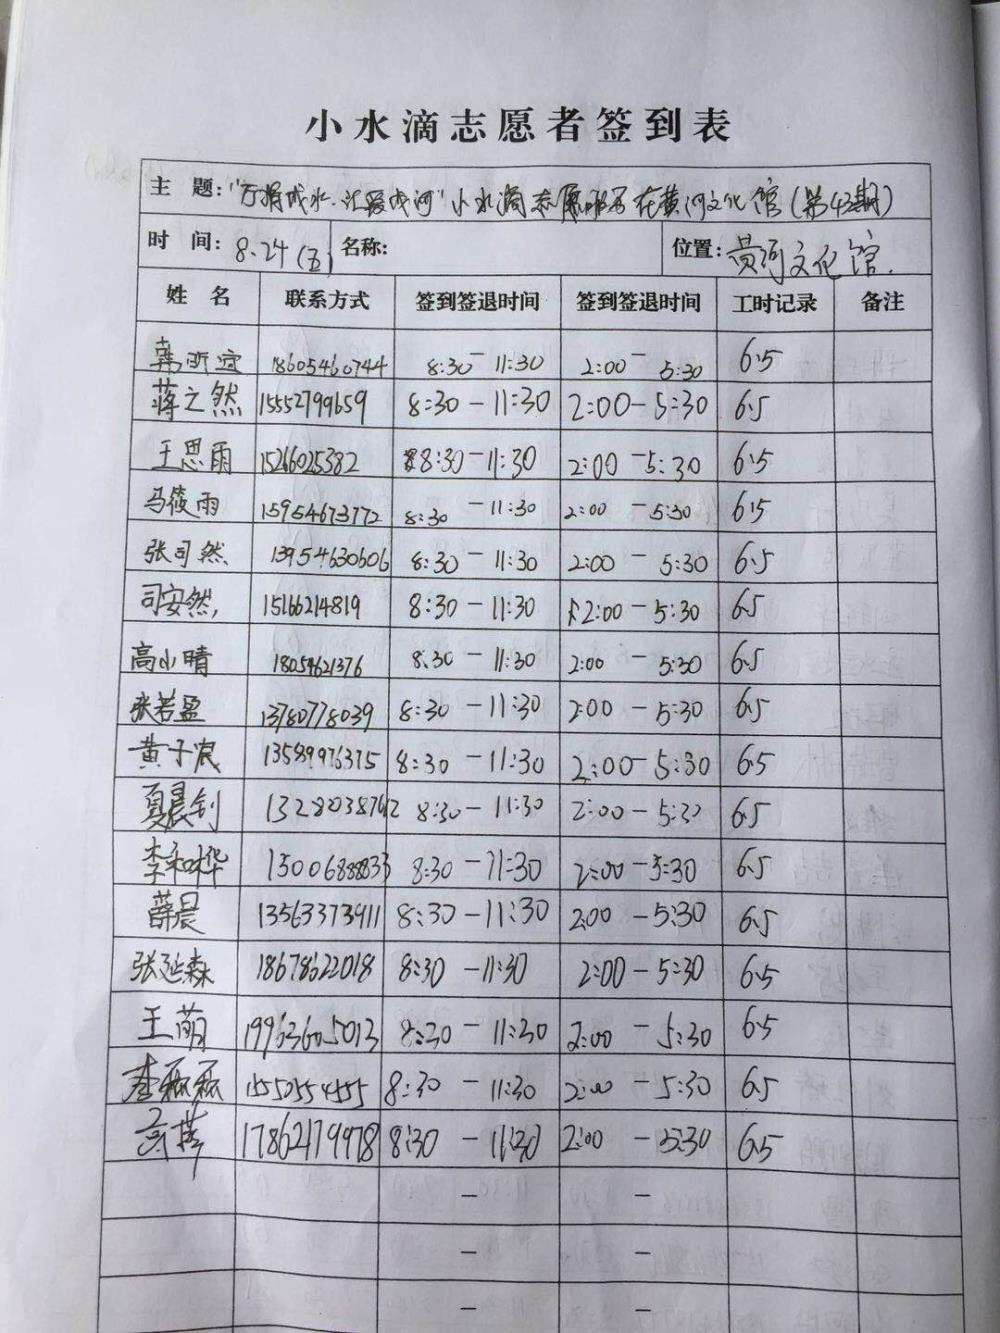 小水滴志愿者签到表
主 题："万涓成水·汇爱成河"小水滴志愿服务在黄河文化馆(第43期)
时 间：8.24(五) 名称： 位置：黄河文化馆.
姓 名 联系方式 签到签退时间 签到签退时间 工时记录 备注
韩昕宜 18605460744 8:30-11:30 2:00-5:30 6.5
蒋之然 15552799659 8:30-11:30 2:00-5:30 6.5
王思雨 15266025382 8:30-11:30 2:00-5:30 6.5
马筱雨 15954673772 8:30-11:30 2:00-5:30 6.5
张司然 13954630606 8:30-11:30 2:00-5:30 6.5
司安然, 15166214819 8:30-11:30 2:00-5:30 6.5
高小晴 18054621376 8:30-11:30 2:00-5:30 6.5
张若盈 13780778039 8:30-11:30 2:00-5:30 6.5
黄子宸 13589976375 8:30-11:30 2:00-5:30 6.5
夏晨钊 13280387612 8:30-11:30 2:00-5:30 6.5
李和桦 15006888833 8:30-11:30 2:00-5:30 6.5
薛晨 13563373911 8:30-11:30 2:00-5:30 6.5
张延森 18678622018 8:30-11:30 2:00-5:30 6.5
王萌 19963605013 8:30-11:30 2:00-5:30 6.5
李 15520554455 8:30-11:30 2:00-5:30 6.5
17862179978 8:30-11:30 2:00-5:30 6.5
- -
- -
- -